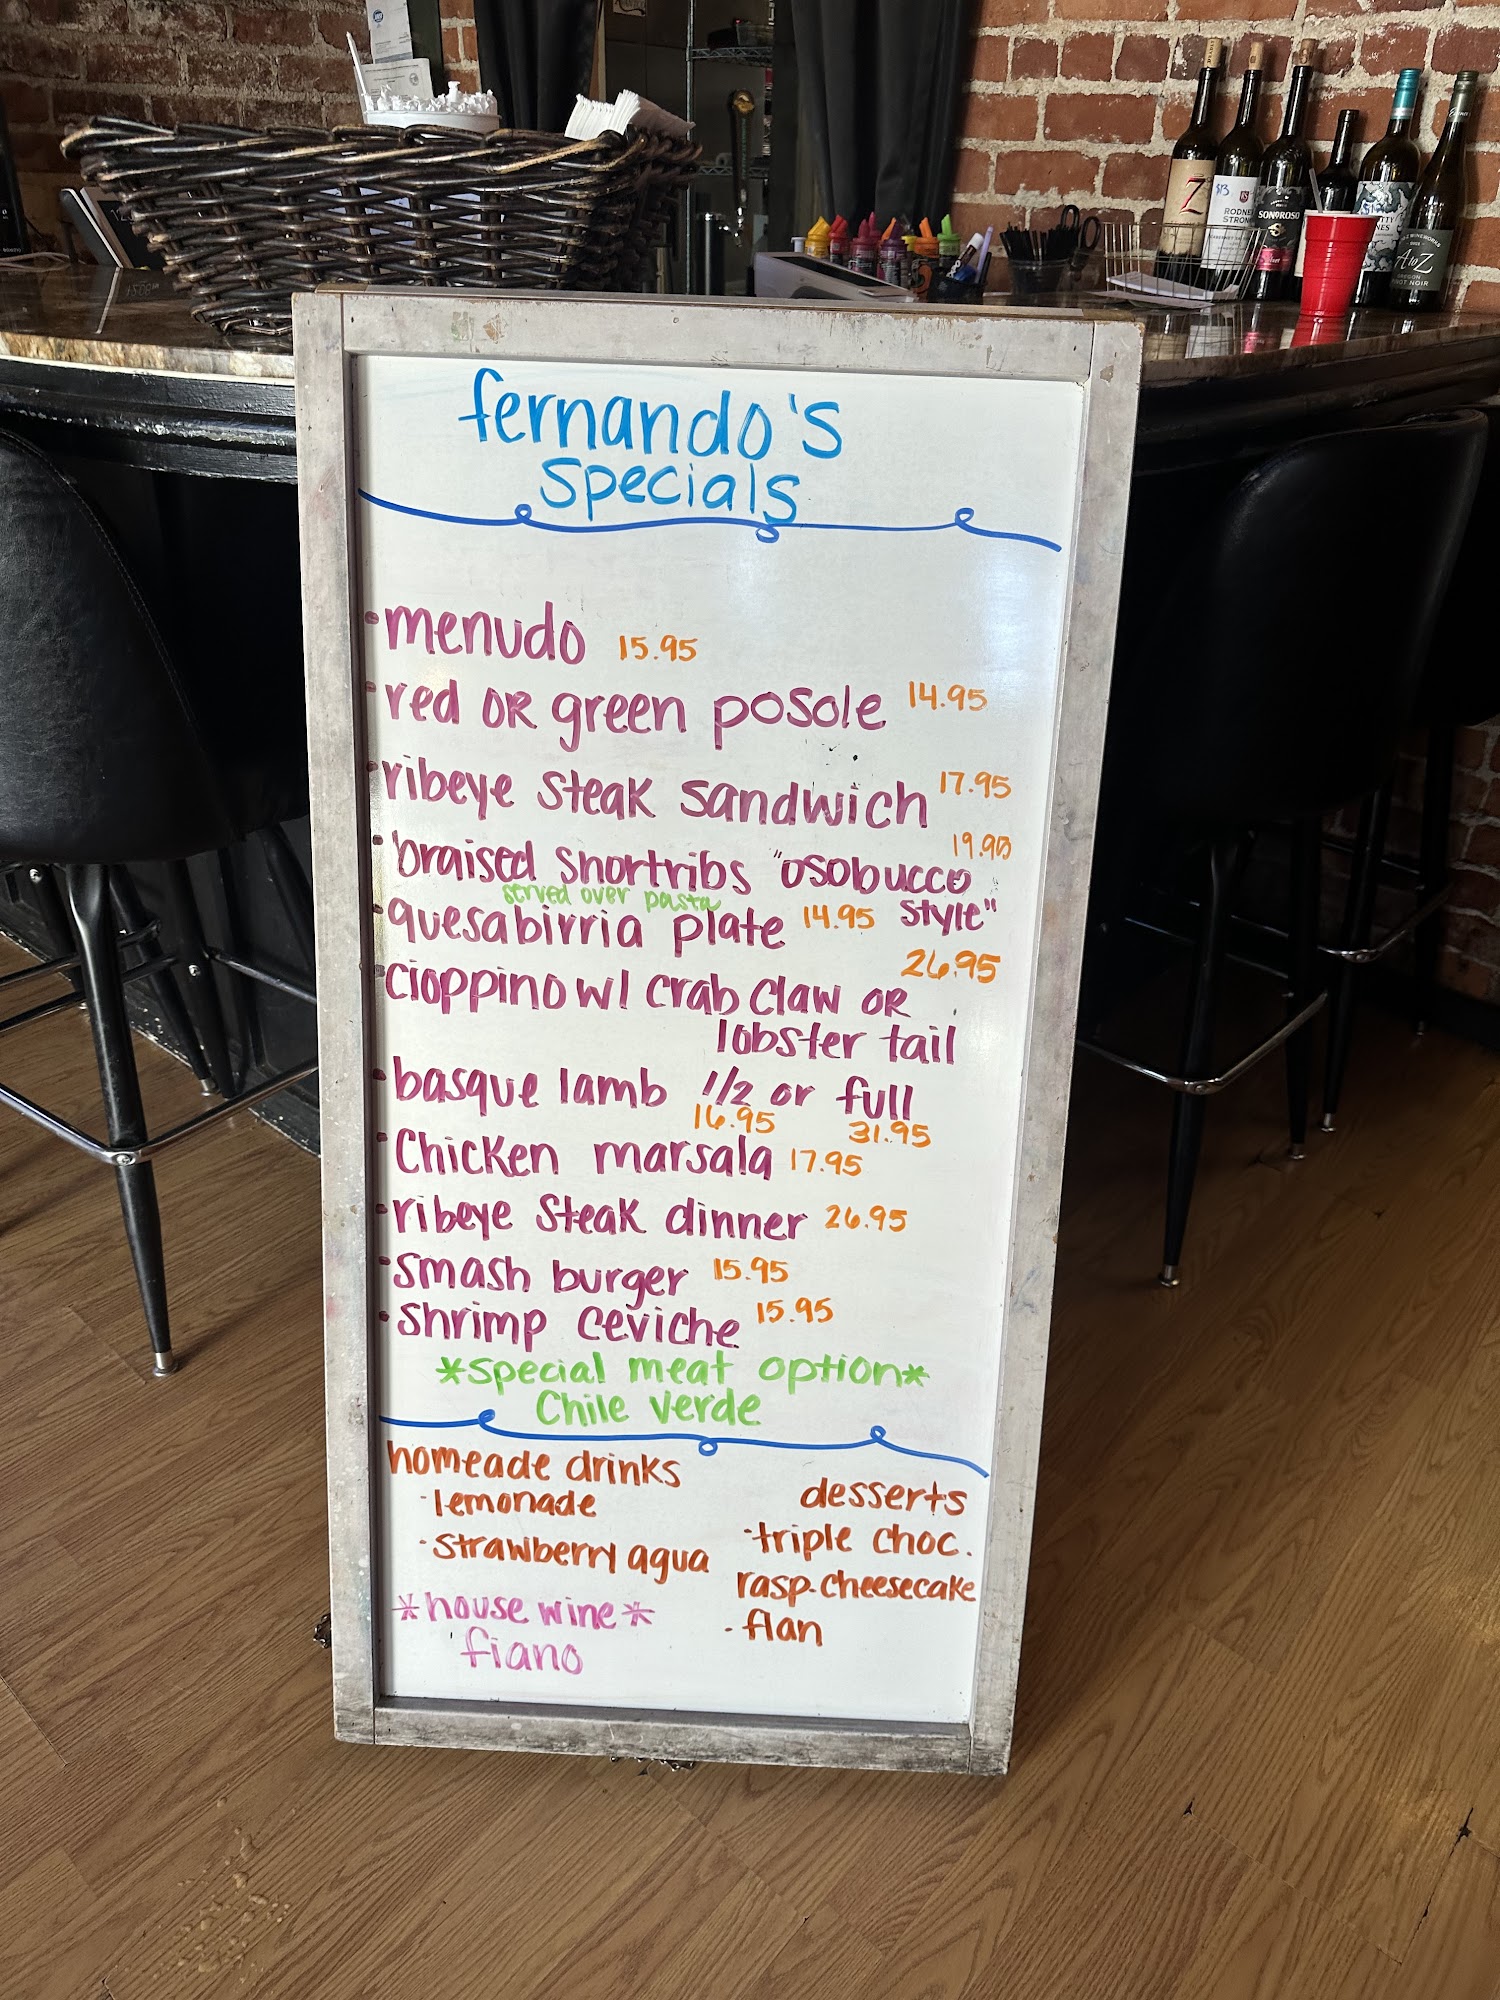 fernando's
specials
• menudo 15.95
• red OR green posole 14.95
• ribeye steak sandwich 17.95
• braised shortribs "osobucco style"
served over pasta
• quesabirria plate 14.95
• cioppino w/ crab claw OR 26.95
lobster tail
• basque lamb 1/2 or full
16.95 31.95
• Chicken marsala 17.95
• ribeye steak dinner 26.95
• smash burger 15.95
• shrimp ceviche 15.95
*special meat option*
Chile verde
homeade drinks
· lemonade
· strawberry agua
*house wine*
fiano
desserts
· triple choc.
rasp. cheesecake
· flan
Z
$13
RODNEY
STRONG
SONOROSO
A to Z
OREGON
PINOT NOIR